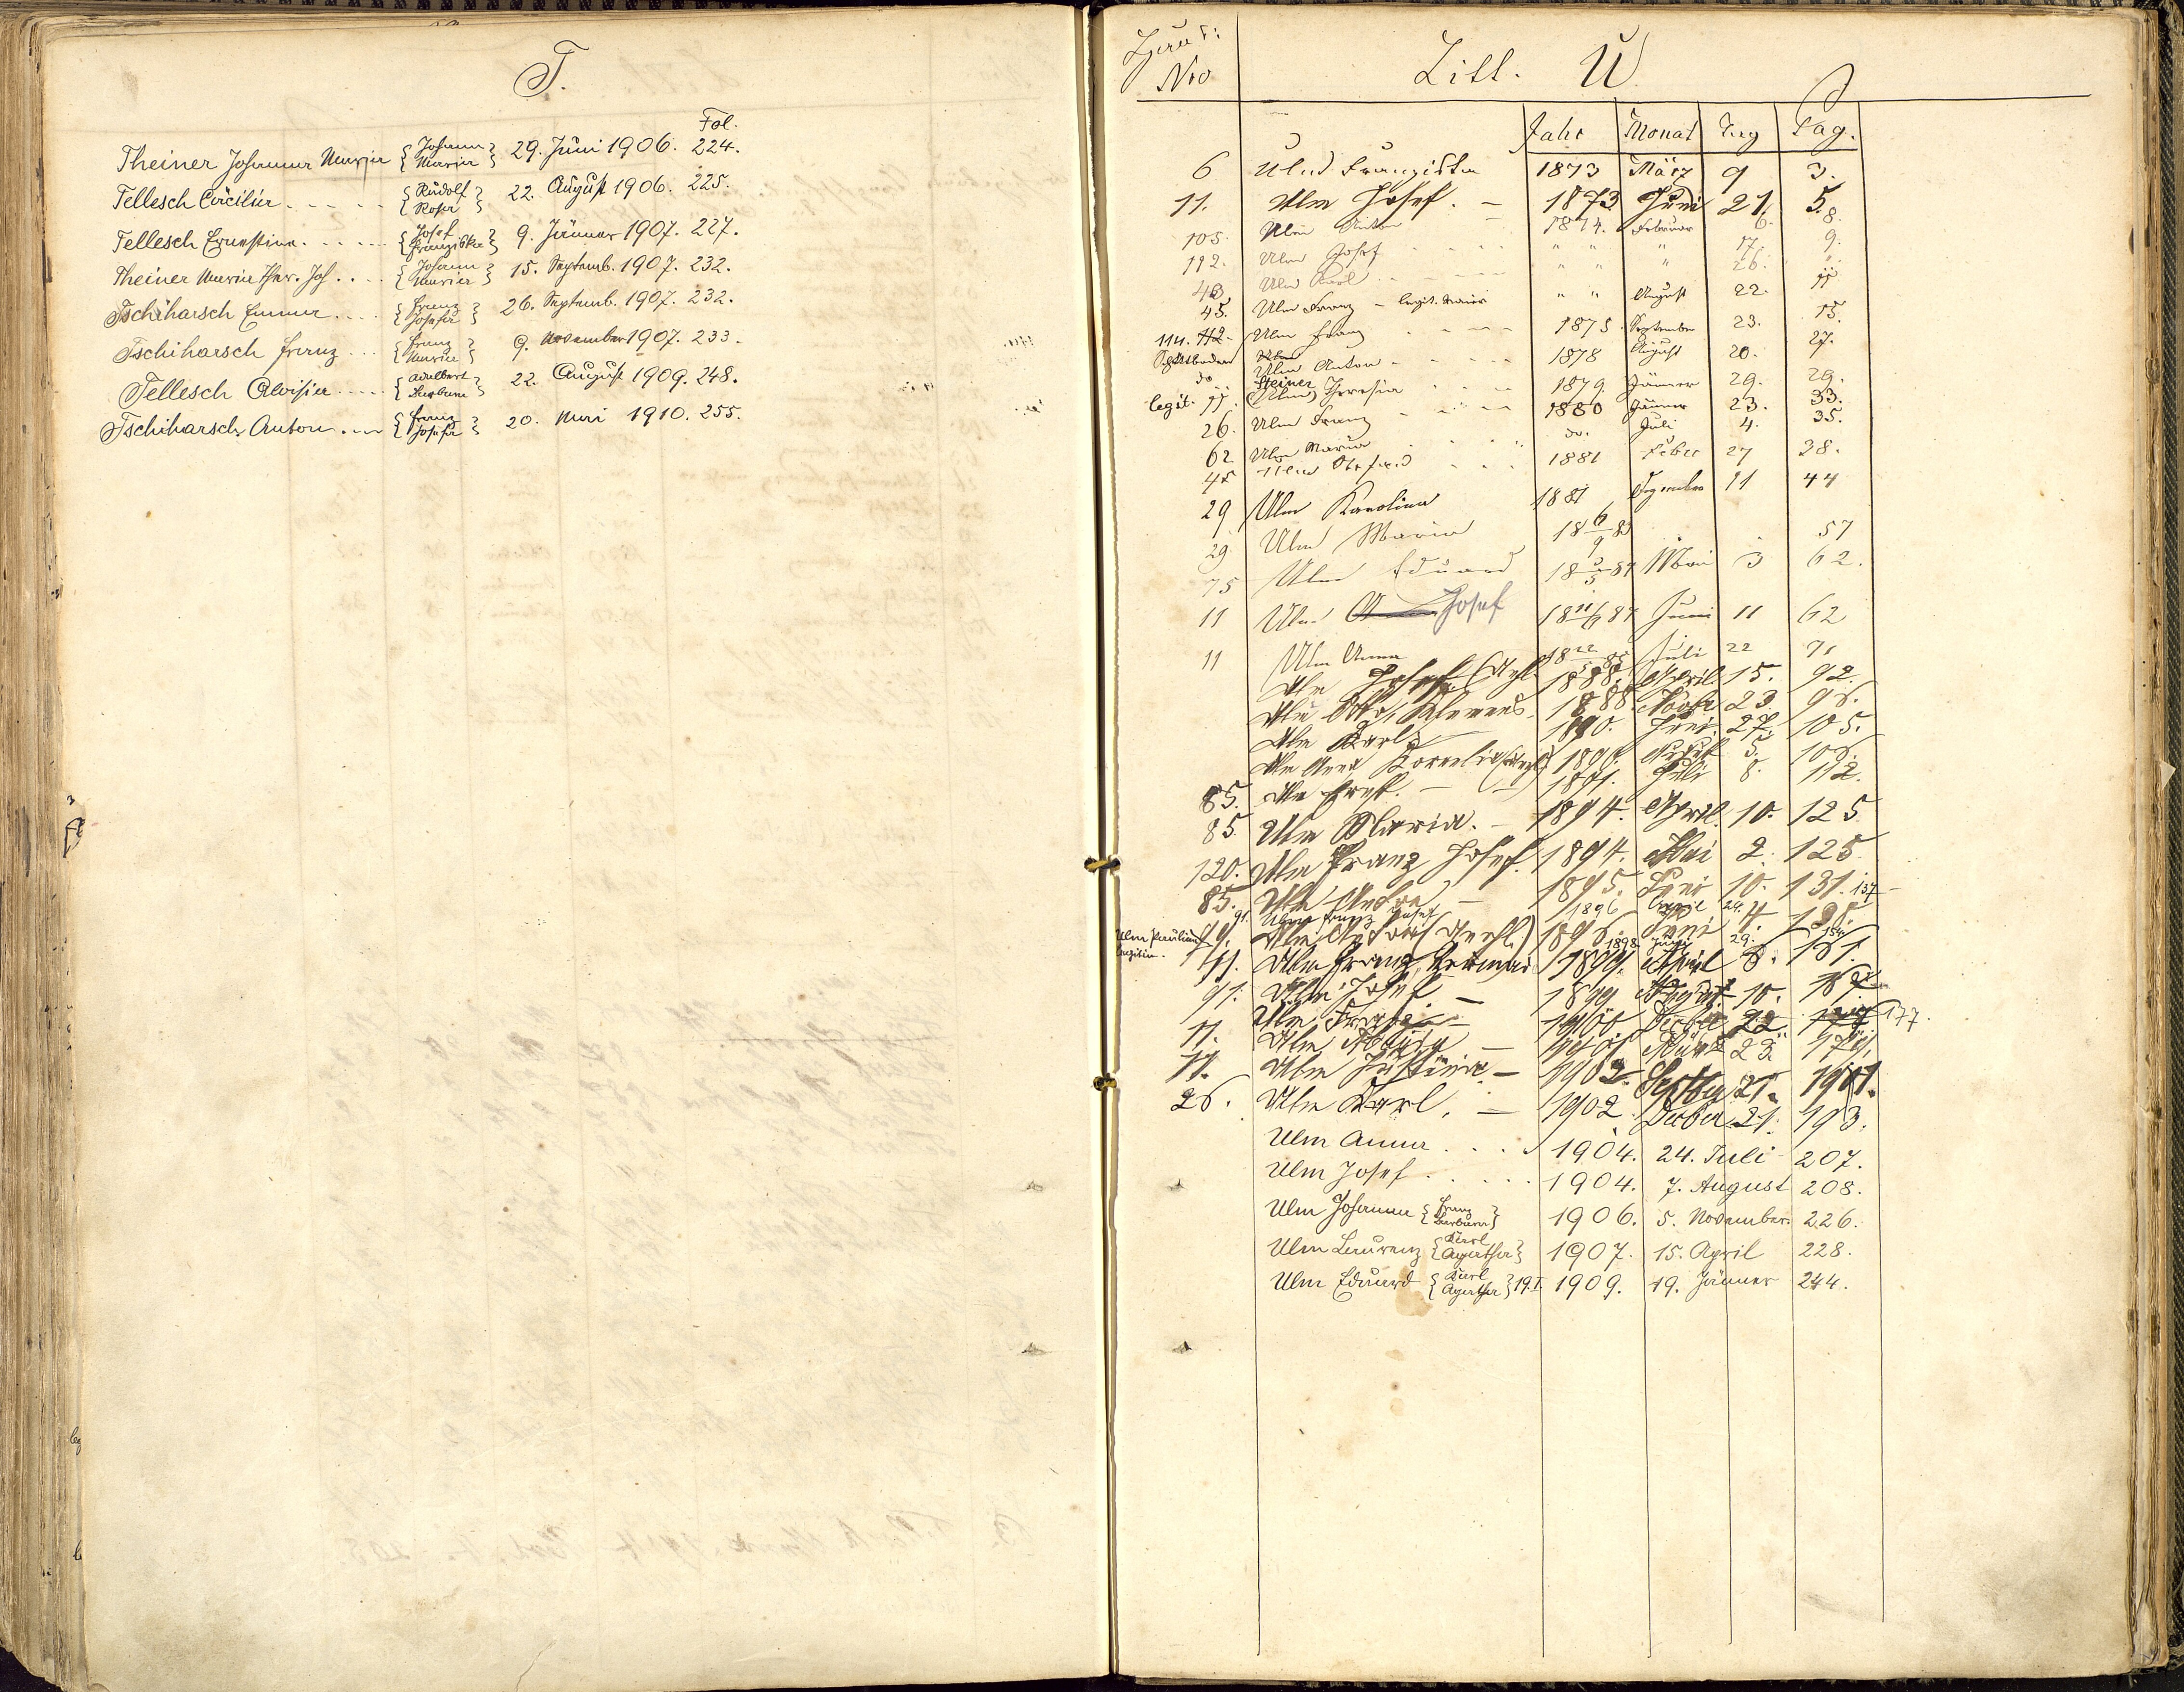 T.
Fol.
Theiner Johanna Maria { Johann Maria } 29. Juni 1906. 224.
Tellesch Cäcilia { Rudolf Rosa } 22. August 1906. 225.
Tellesch Ernestine { Josef Franziska } 9. Jänner 1907. 227.
Theiner Maria Ther. Jos. { Johann Maria } 15. Septemb. 1907. 232.
Tschiharsch Emma { Franz Josefa } 26. Septemb. 1907. 232.
Tschiharsch Franz { Franz Maria } 9. November 1907. 233.
Tellesch Aloisia { Adalbert Barbara } 22. August 1909. 248.
Tschiharsch Anton { Franz Josefa } 20. Mai 1910. 255.
Haus: Nro Litt. U
Jahr Monat Tag Pag.
6 Ulm Franziska 1873 März 9 3.
11. Ulm Josef. 1873 Juni 21 5.
105. Ulm Anton 1874. Februar 6. 8.
112. Ulm Josef " " " 17. 9.
43 Ulm Karl " " " 26. "
45. Ulm Franz - legit. " " August 22. 11
114. 112. Ulm Franz 1875. September 23. 15.
Ulm Anton 1878 August 20. 27.
do Steiner
legit. 11. (Ulm) Theresia 1879. Jänner 29. 29.
26. Ulm Franz 1880 Jänner 23. 33.
62 Ulm Maria do. Juli 4. 35.
45 Ulm 1881 Feber 27 38.
29 Ulm Karolina 1881 Dezember 11 44
29 Ulm Maria 18 6/9 83 57
75 Ulm Eduard 18 3/5 84 Mai 3 62.
11 Ulm Josef 18 11/6 84 Juni 11 62
11 Ulm Anna 18 22/ 85 Juli 22 71
Ulm Josef 1888. April 15. 92.
Ulm Klemens 1888. Novbr 23 96.
Ulm Karl 1890. Juni 27. 105.
Ulm Anna Kornelia 1890. August 5. 106.
85. Ulm Josef. 1891. Juli 8. 112.
85. Ulm Maria. 1894. April. 10. 125
120. Ulm Franz Josef. 1894. Mai 2. 125
85. Ulm 1895. Juni 10. 131. 137
91. Ulm Franz Josef 1896 April 24.
Ulm Paulina
Ulm 1896. Juni 4.
1898. 29. 154
11. Ulm Franz 1899. April 8. 161.
91. Ulm Josef 1899 August 10.
Ulm 1900 Decber 22. 177.
11. Ulm 1901 März 23. 179.
11. Ulm Justina 1902. Septber 21.
26. Ulm Karl. 1902. Decber 21. 193.
Ulm Anna 1904. 24. Juli 207.
Ulm Josef 1904. 7. August 208.
Ulm Johanna { Franz Barbara } 1906. 5. November. 226.
Ulm Laurenz { Karl Agatha } 1907. 15. April 228.
Ulm Eduard { Karl Agatha } 19.I. 1909. 19. Jänner 244.